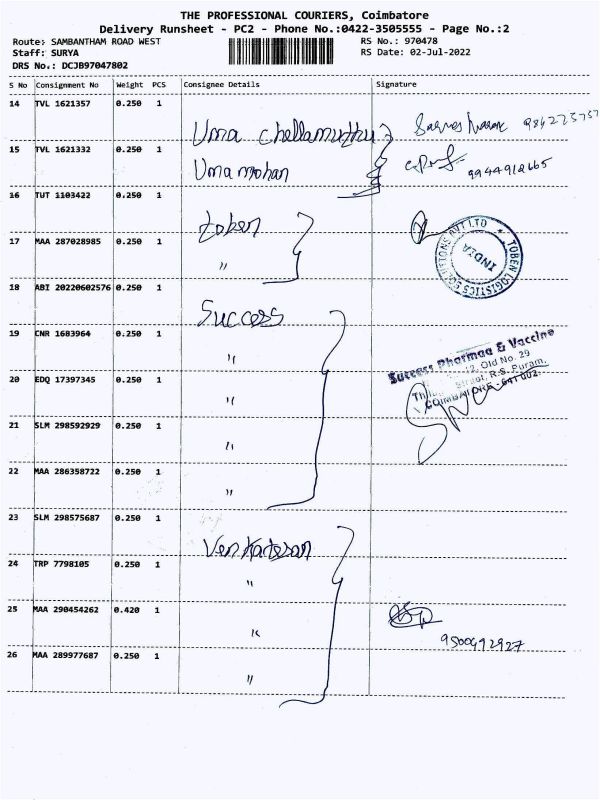 THE PROFESSIONAL COURIERS, Coimbatore
Delivery Runsheet - PC2 - Phone No.:0422-3505555 - Page No.:2
Route: SAMBANTHAM ROAD WEST RS No.: 970478
Staff: SURYA RS Date: 02-Jul-2022
DRS No.: DCJB97047802
S No Consignment No Weight PCS Consignee Details Signature
14 TVL 1621357 0.250 1 Uma Chellamuthu
15 TVL 1621332 0.250 1 Uma mohan 9944912665
16 TUT 1103422 0.250 1 toben
17 MAA 287028985 0.250 1 "
TOBEN LOGISTICS SOLUTIONS PVT LTD
INDIA
18 ABI 20220602576 0.250 1 Success
19 CNR 1683964 0.250 1 "
Success Pharmaa & Vaccine
12, Old No. 29
Street, R.S. Puram,
COIMBATORE - 641 002.
20 EDQ 17397345 0.250 1 "
21 SLM 298592929 0.250 1 "
22 MAA 286358722 0.250 1 "
23 SLM 298575687 0.250 1 Venkatesan
24 TRP 7798105 0.250 1 "
25 MAA 290454262 0.420 1 "
9500492927
26 MAA 289977687 0.250 1 "